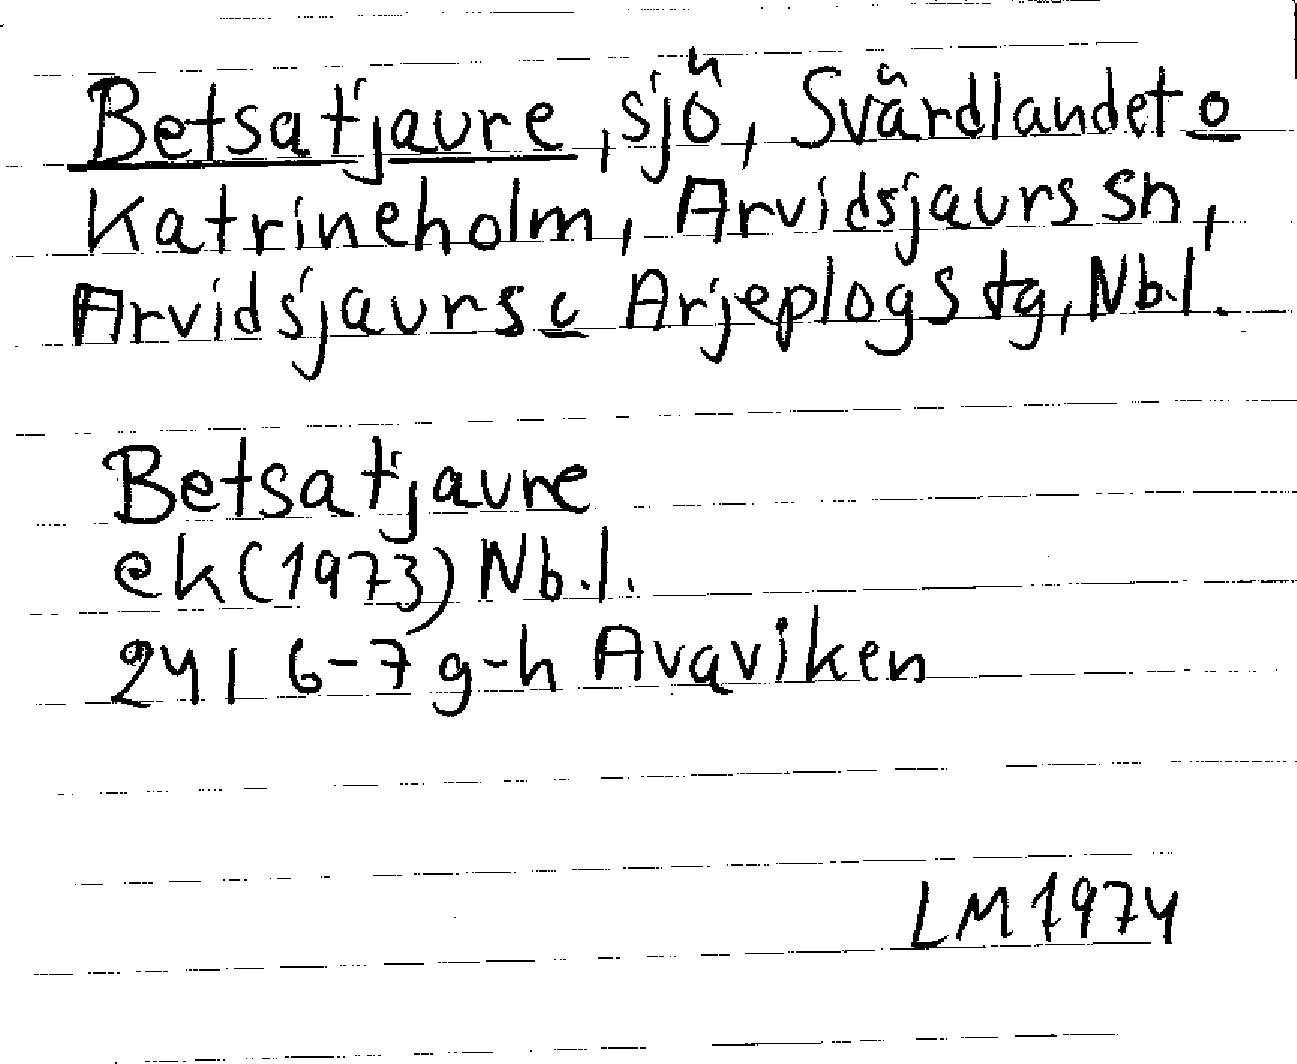 Betsatjaure, sjö, Svärdlandet o
Katrineholm, Arvidsjaurs sn,
Arvidsjaurs o Arjeplogs tg, Nb.l.
Betsatjaure
ek (1973) Nb.l.
24I 6-7 g-h Avaviken
LM 1974